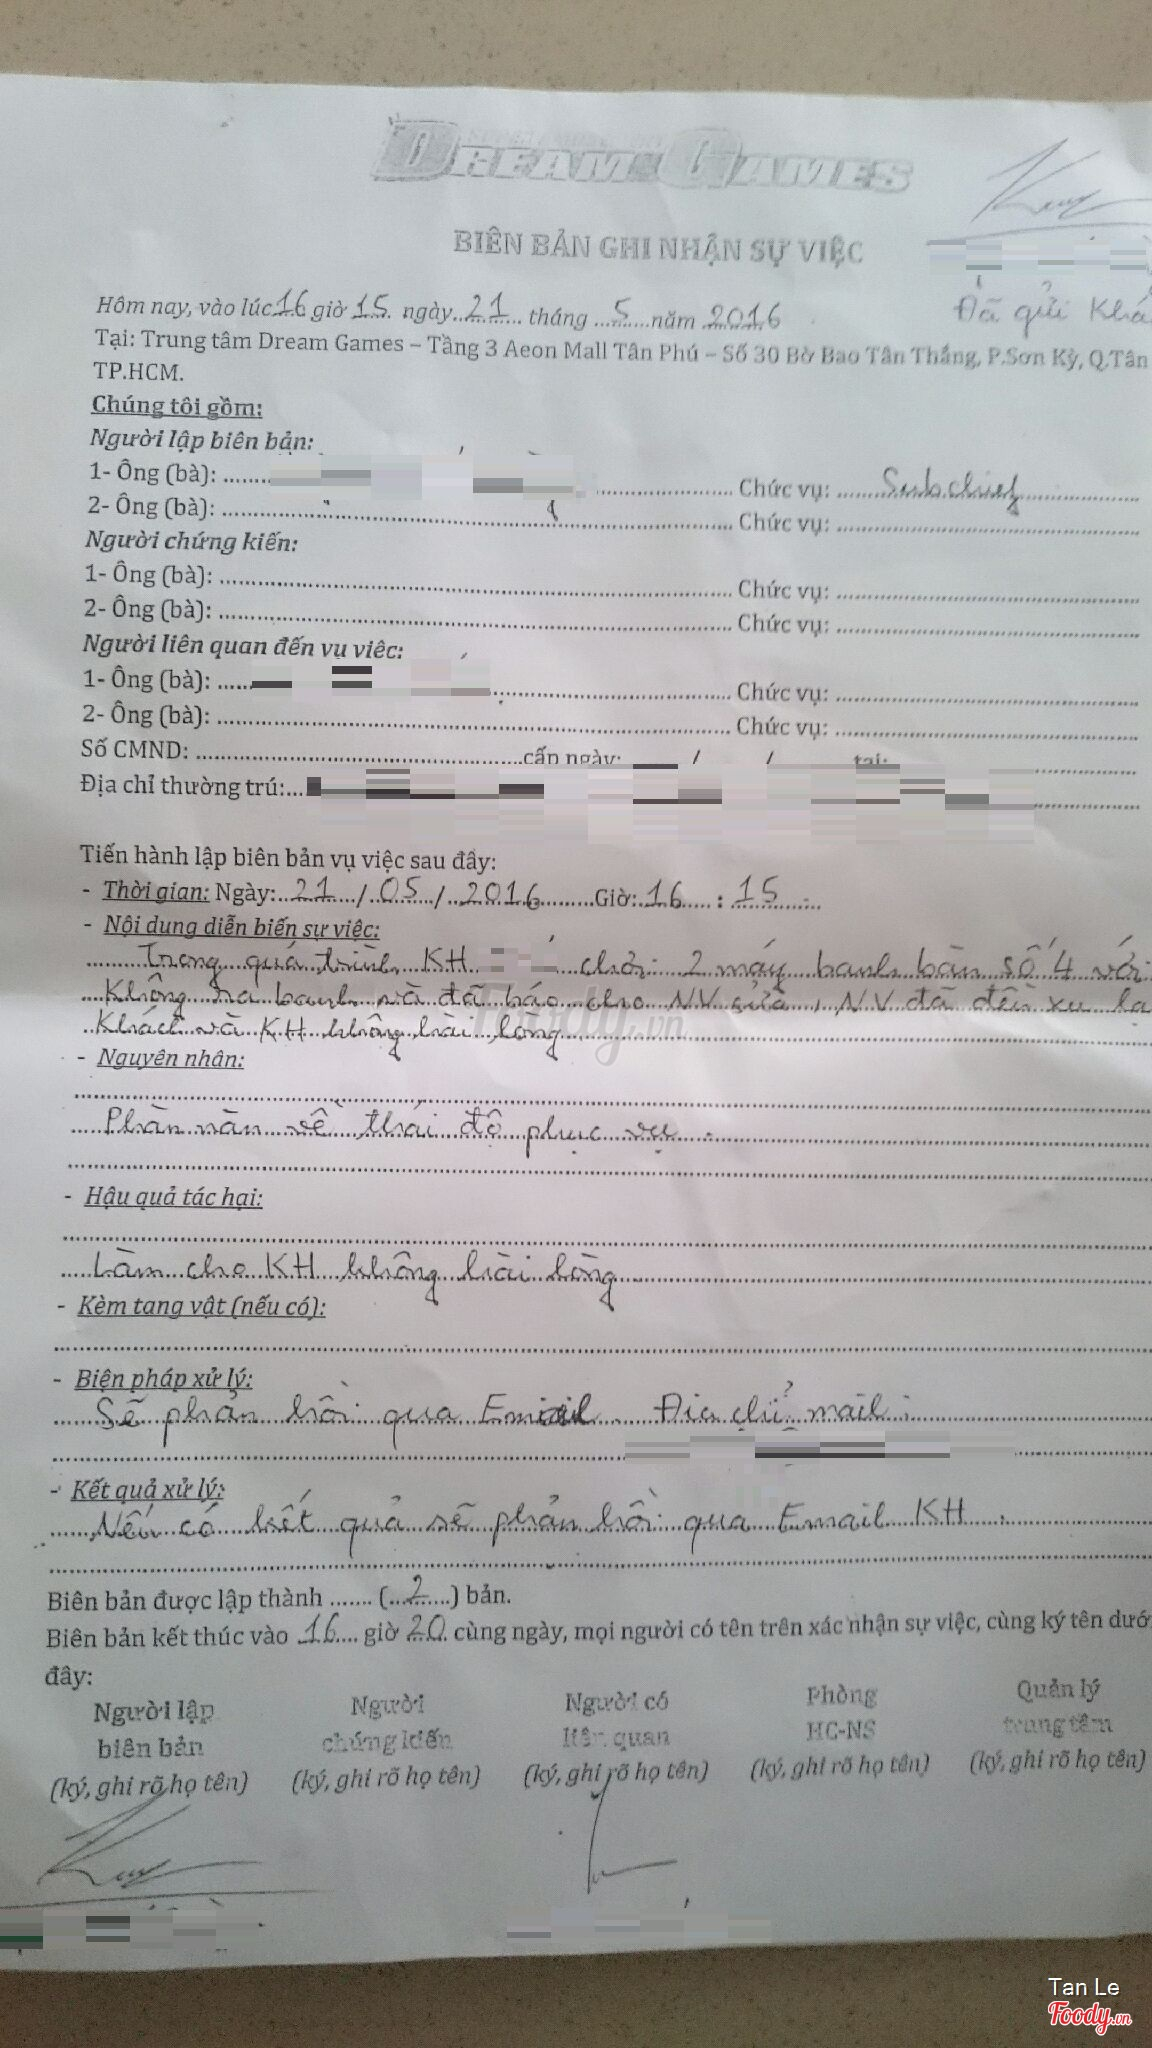 DREAM GAMES
BIÊN BẢN GHI NHẬN SỰ VIỆC
Hôm nay, vào lúc 16 giờ 15 ngày 21 tháng 5 năm 2016
Đã gửi Khá
Tại: Trung tâm Dream Games – Tầng 3 Aeon Mall Tân Phú – Số 30 Bờ Bao Tân Thắng, P.Sơn Kỳ, Q.Tân
TP.HCM.
Chúng tôi gồm:
Người lập biên bản:
1- Ông (bà): Chức vụ: Subchief
2- Ông (bà): Chức vụ:
Người chứng kiến:
1- Ông (bà): Chức vụ:
2- Ông (bà): Chức vụ:
Người liên quan đến vụ việc:
1- Ông (bà): Chức vụ:
2- Ông (bà): Chức vụ:
Số CMND: cấp ngày: / / tại:
Địa chỉ thường trú:
Tiến hành lập biên bản vụ việc sau đây:
- Thời gian: Ngày: 21 / 05 / 2016 Giờ: 16 : 15
- Nội dung diễn biến sự việc:
Trong quá trình KH chơi 2 máy banh bàn số 4 với
Không ra banh và đã báo cho NV sửa, NV đã đền xu lạ
Khách và KH không hài lòng
- Nguyên nhân:
Phàn nàn về thái độ phục vụ.
- Hậu quả tác hại:
Làm cho KH không hài lòng
- Kèm tang vật (nếu có):
- Biện pháp xử lý:
Sẽ phản hồi qua Email. Địa chỉ mail:
- Kết quả xử lý:
Nếu có kết quả sẽ phản hồi qua Email KH.
Biên bản được lập thành ....... (2) bản.
Biên bản kết thúc vào 16 giờ 20 cùng ngày, mọi người có tên trên xác nhận sự việc, cùng ký tên dướ
đây:
Người lập biên bản (ký, ghi rõ họ tên)
Người chứng kiến (ký, ghi rõ họ tên)
Người có liên quan (ký, ghi rõ họ tên)
Phòng HC-NS (ký, ghi rõ họ tên)
Quản lý trung tâm (ký, ghi rõ họ tên)
Foody.vn
Tan Le
Foody.vn